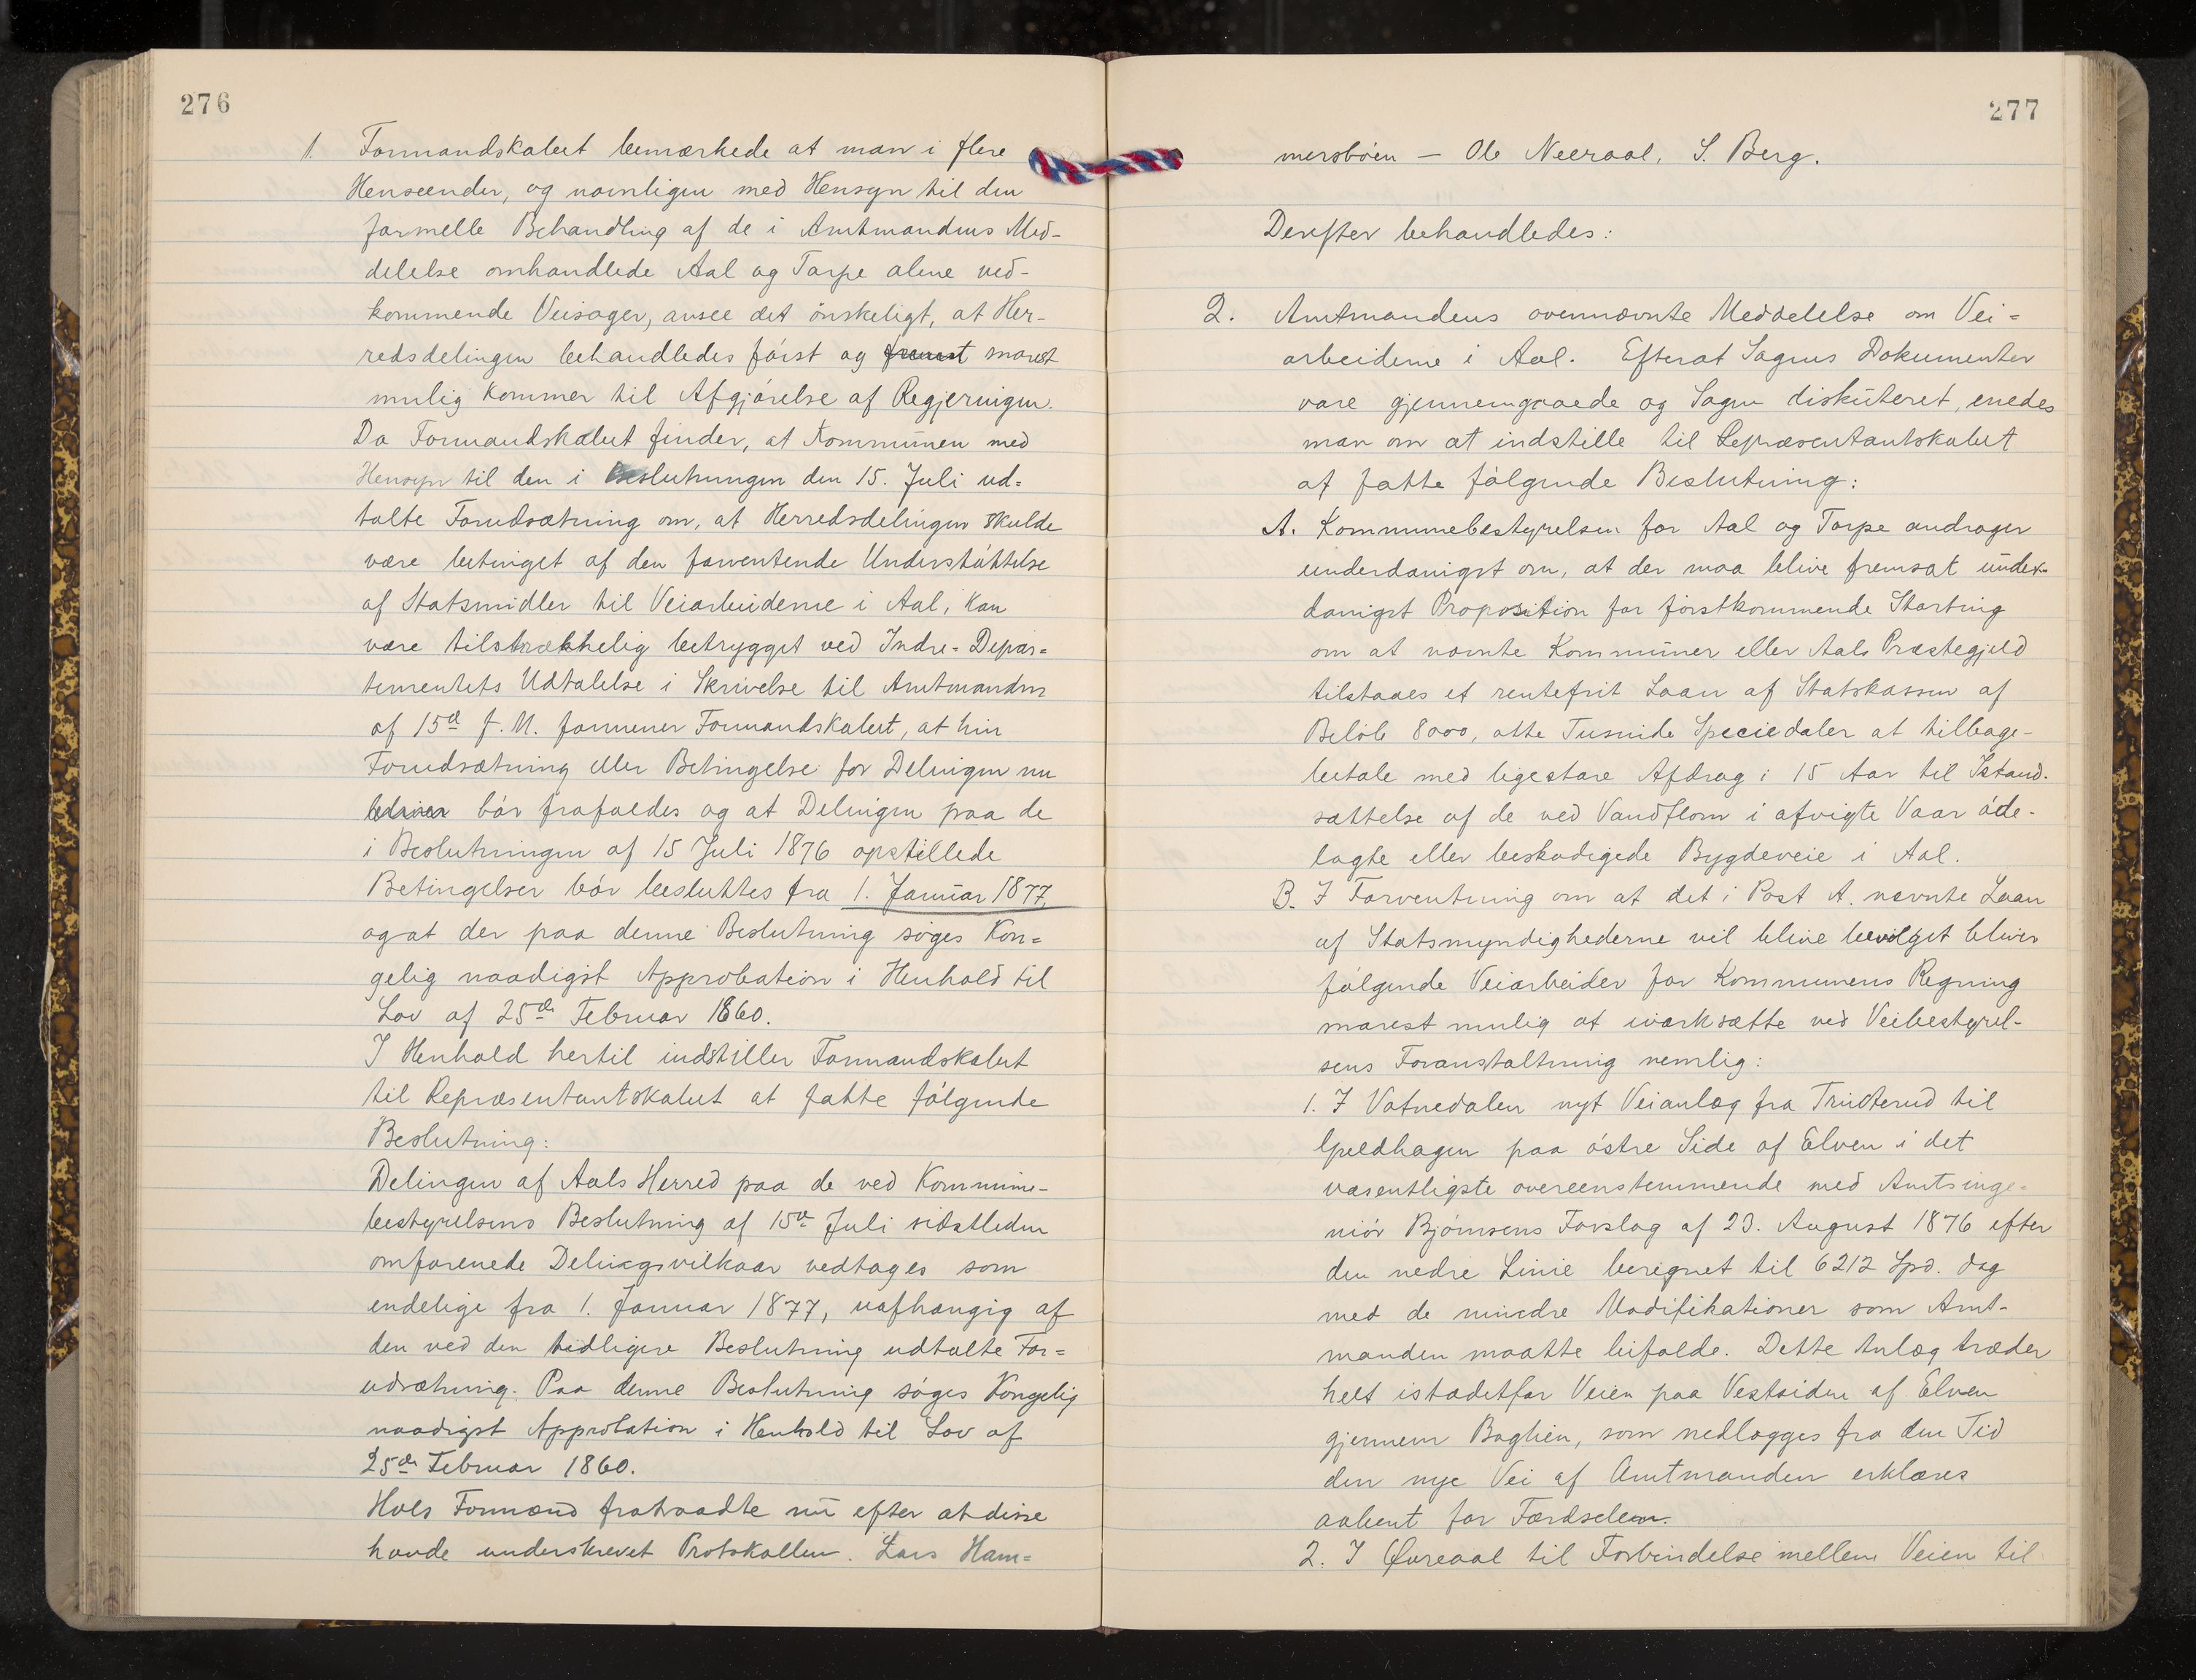 276
1. Formandskabet bemærkede at man i flere
Henseender, og navnligen med Hensyn til den
formelle Behandling af de i Amtmandens Med-
delelse omhandlede Aal og Torpe alene ved-
kommende Veisager, ansee det ønskeligt, at Her-
redsdelingen behandledes først og snarest
mulig kommer til Afgjørelse af Regjeringen.
Da Formandskabet finder, at Kommunen med
Hensyn til den i Beslutningen den 15. Juli ud=
talte Forudsætning om, at Herredsdelingen skulde
være betinget af den forventende Understøttelse
af Statsmidler til Veiarbeiderne i Aal, kan
være tilstrækkelig betrygget ved Indre=Depar=
tementets Udtalelse i Skrivelse til Amtmanden
af 15de f. M. formener Formandskabet, at hin
Forudsætning eller Betingelse for Delingen nu
bør frafaldes og at Delingen paa de
i Beslutningen af 15 Juli 1876 opstillede
Betingelser bør besluttes fra 1. Januar 1877,
og at der paa denne Beslutning søges Kon=
gelig naadigst Approbation i Henhold til
Lov af 25de Februar 1860.
I Henhold hertil indstiller Formandskabet
til Repræsentantskabet at fatte følgende
Beslutning:
Delingen af Aals Herred paa de ved Kommune-
bestyrelsens Beslutning af 15de Juli sidstleden
omforenede Delingsvilkaar vedtages som
endelige fra 1. Januar 1877, uafhængig af
den ved den tidligere Beslutning udtalte For=
udsætning. Paa denne Beslutning søges Kongelig
naadigst Approbation i Henhold til Lov af
25de Februar 1860.
Hols Formænd fratraadte nu efter at disse
havde underskrevet Protokollen. Lars Ham=
277
mersbøen — Ole Neeraal, S. Berg.
Derefter behandledes:
2. Amtmandens ovennævnte Meddelelse om Vei=
arbeiderne i Aal. Efterat Sagens Dokumenter
vare gjennemgaaede og Sagen diskuteret, enedes
man om at indstille til Repræsentantskabet
at fatte følgende Beslutning:
A. Kommunebestyrelsen for Aal og Torpe andrager
underdanigst om, at der maa blive fremsat under-
danigst Proposition for førstkommende Storting
om at nævnte Kommuner eller Aals Præstegjeld
tilstaaes et rentefrit Laan af Statskassen af
Beløb 8000, otte Tusinde Speciedaler at tilbage-
betale med ligestore Afdrag i 15 Aar til Istand-
sættelse af de ved Vandflom i afvigte Vaar øde-
lagte eller beskadigede Bygdeveie i Aal.
B. I Forventning om at det i Post A. nævnte Laan
af Statsmyndighederne vil blive bevilget bliver
følgende Veiarbeider for Kommunens Regning
snarest mulig at iværksætte ved Veibestyrel-
sens Foranstaltning nemlig:
1. I Votnedalen nyt Veianlæg fra Trudterud til
paa østre Side af Elven i det
væsentligste overeenstemmende med Amtsinge-
niør Bjørnsens Forslag af 23. August 1876 efter
den nedre Linie beregnet til 6212 Spd. dog
med de mindre Modifikationer som Amt-
manden maatte bifalde. Dette Anlæg træder
helt istædetfor Veien paa Vestsiden af Elven
gjennem Baglien, som nedlægges fra den Tid
den nye Vei af Amtmanden erklæres
aabent for Færdselen.
2. I Øvreaal til Forbindelse mellem Veien til